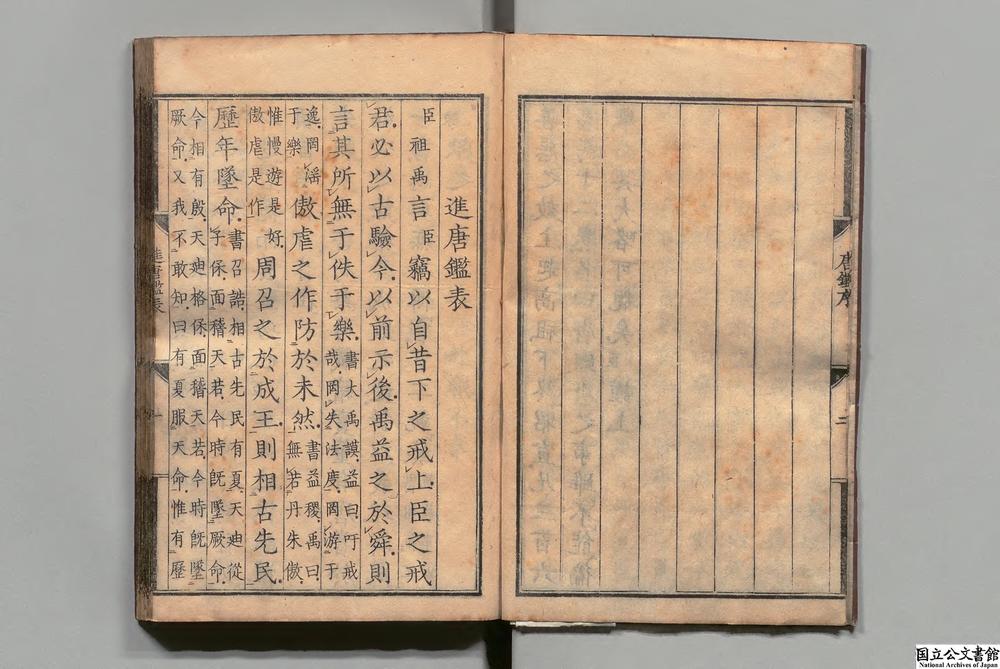 唐鑑序
二
進唐鑑表
臣祖禹言臣竊以自昔下之戒上臣之戒
君必以古驗今以前示後禹益之於舜則
言其所無于佚于樂書大禹謨益曰吁戒
哉罔失法度罔游于
逸罔淫
于樂傲虐之作防於未然書益稷禹曰
無若丹朱傲
惟慢遊是好
傲虐是作周召之於成王則相古先民
歷年墜命書召誥相古先民有夏天迪從
子保面稽天若今時既墜厥命
今相有殷天迪格保面稽天若今時既墜
厥命又我不敢知曰有夏服天命惟有歷
進唐鑑表
一
国立公文書館
National Archives of Japan